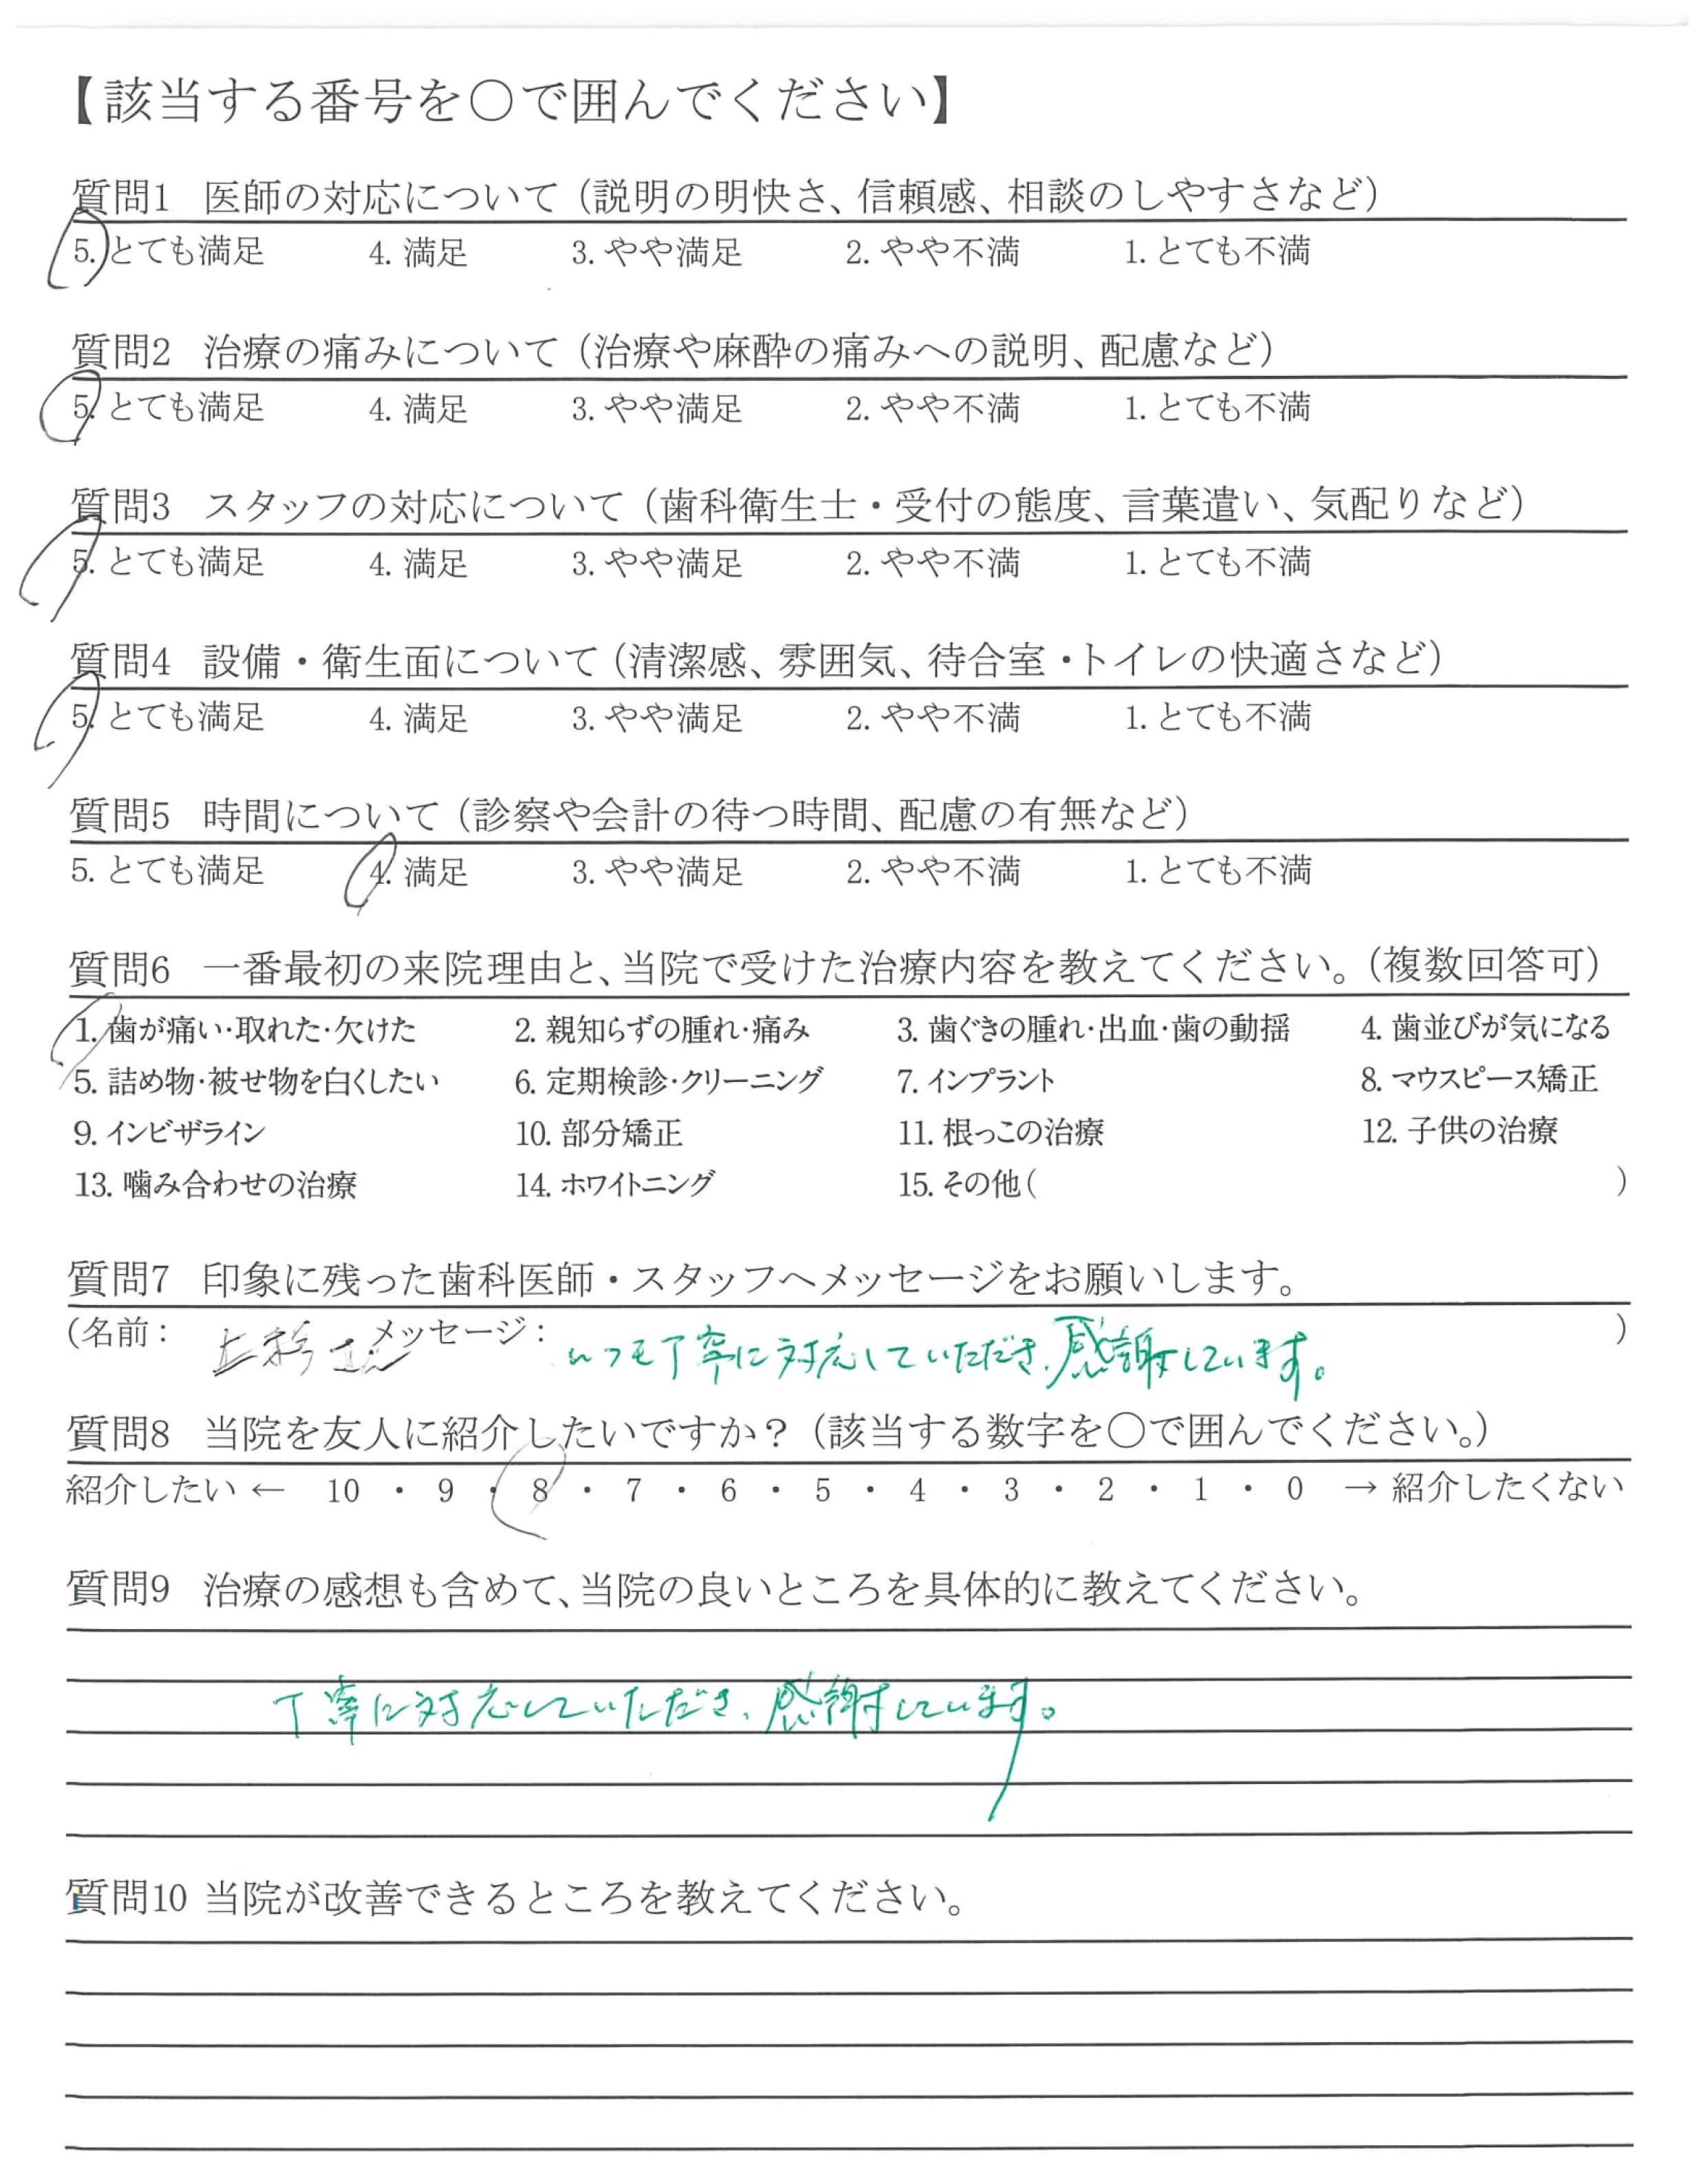 【該当する番号を○で囲んでください】
質問1 医師の対応について（説明の明快さ、信頼感、相談のしやすさなど）
5. とても満足 4. 満足 3. やや満足 2. やや不満 1. とても不満
質問2 治療の痛みについて（治療や麻酔の痛みへの説明、配慮など）
5. とても満足 4. 満足 3. やや満足 2. やや不満 1. とても不満
質問3 スタッフの対応について（歯科衛生士・受付の態度、言葉遣い、気配りなど）
5. とても満足 4. 満足 3. やや満足 2. やや不満 1. とても不満
質問4 設備・衛生面について（清潔感、雰囲気、待合室・トイレの快適さなど）
5. とても満足 4. 満足 3. やや満足 2. やや不満 1. とても不満
質問5 時間について（診察や会計の待つ時間、配慮の有無など）
5. とても満足 4. 満足 3. やや満足 2. やや不満 1. とても不満
質問6 一番最初の来院理由と、当院で受けた治療内容を教えてください。（複数回答可）
1. 歯が痛い・取れた・欠けた 2. 親知らずの腫れ・痛み 3. 歯ぐきの腫れ・出血・歯の動揺 4. 歯並びが気になる
5. 詰め物・被せ物を白くしたい 6. 定期検診・クリーニング 7. インプラント 8. マウスピース矯正
9. インビザライン 10. 部分矯正 11. 根っこの治療 12. 子供の治療
13. 噛み合わせの治療 14. ホワイトニング 15. その他（ ）
質問7 印象に残った歯科医師・スタッフへメッセージをお願いします。
（名前： メッセージ： いつも丁寧に対応していただき、感謝しています。）
質問8 当院を友人に紹介したいですか？（該当する数字を○で囲んでください。）
紹介したい ← 10 ・ 9 ・ 8 ・ 7 ・ 6 ・ 5 ・ 4 ・ 3 ・ 2 ・ 1 ・ 0 → 紹介したくない
質問9 治療の感想も含めて、当院の良いところを具体的に教えてください。
丁寧に対応していただき、感謝しています。
質問10 当院が改善できるところを教えてください。